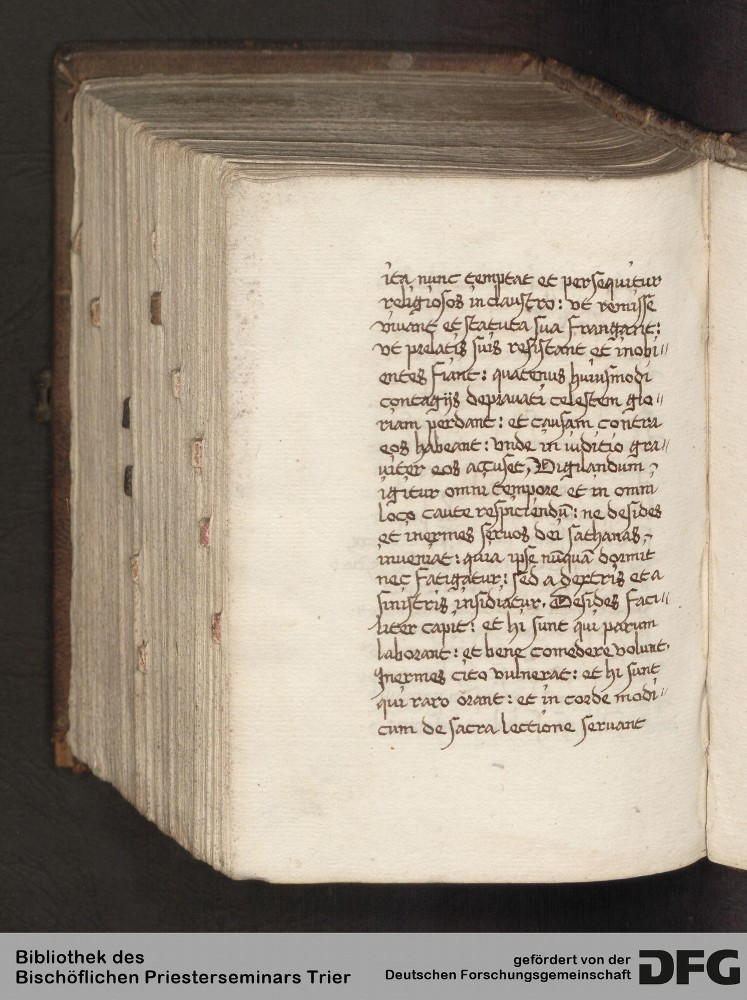 ita nunc temptat et persequitur
religiosos in claustro: vt remisse
vivant et statuta sua frangant:
vt prelatis suis resistant et inobi⸗
entes fiant: quatenus huiusmodi
contagijs depravati celestem glo⸗
riam perdant: et causam contra
eos habeant: vnde in iuditio gra⸗
viter eos accuset, Vigilandum
igitur omni tempore et in omni
loco caute respiciendū: ne desides
et inermes servos dei sathanas
inveniat: quia ipse nūquā dormit
nec fatigatur: sed a dextris et a
sinistris insidiatur. Desides faci⸗
liter capit: et hi sunt qui parum
laborant: et bene comedere volunt.
Inermes cito vulnerat: et hi sunt
qui raro orant: et in corde modi⸗
cum de sacra lectione servant
Bibliothek des
Bischöflichen Priesterseminars Trier
gefördert von der
Deutschen Forschungsgemeinschaft DFG